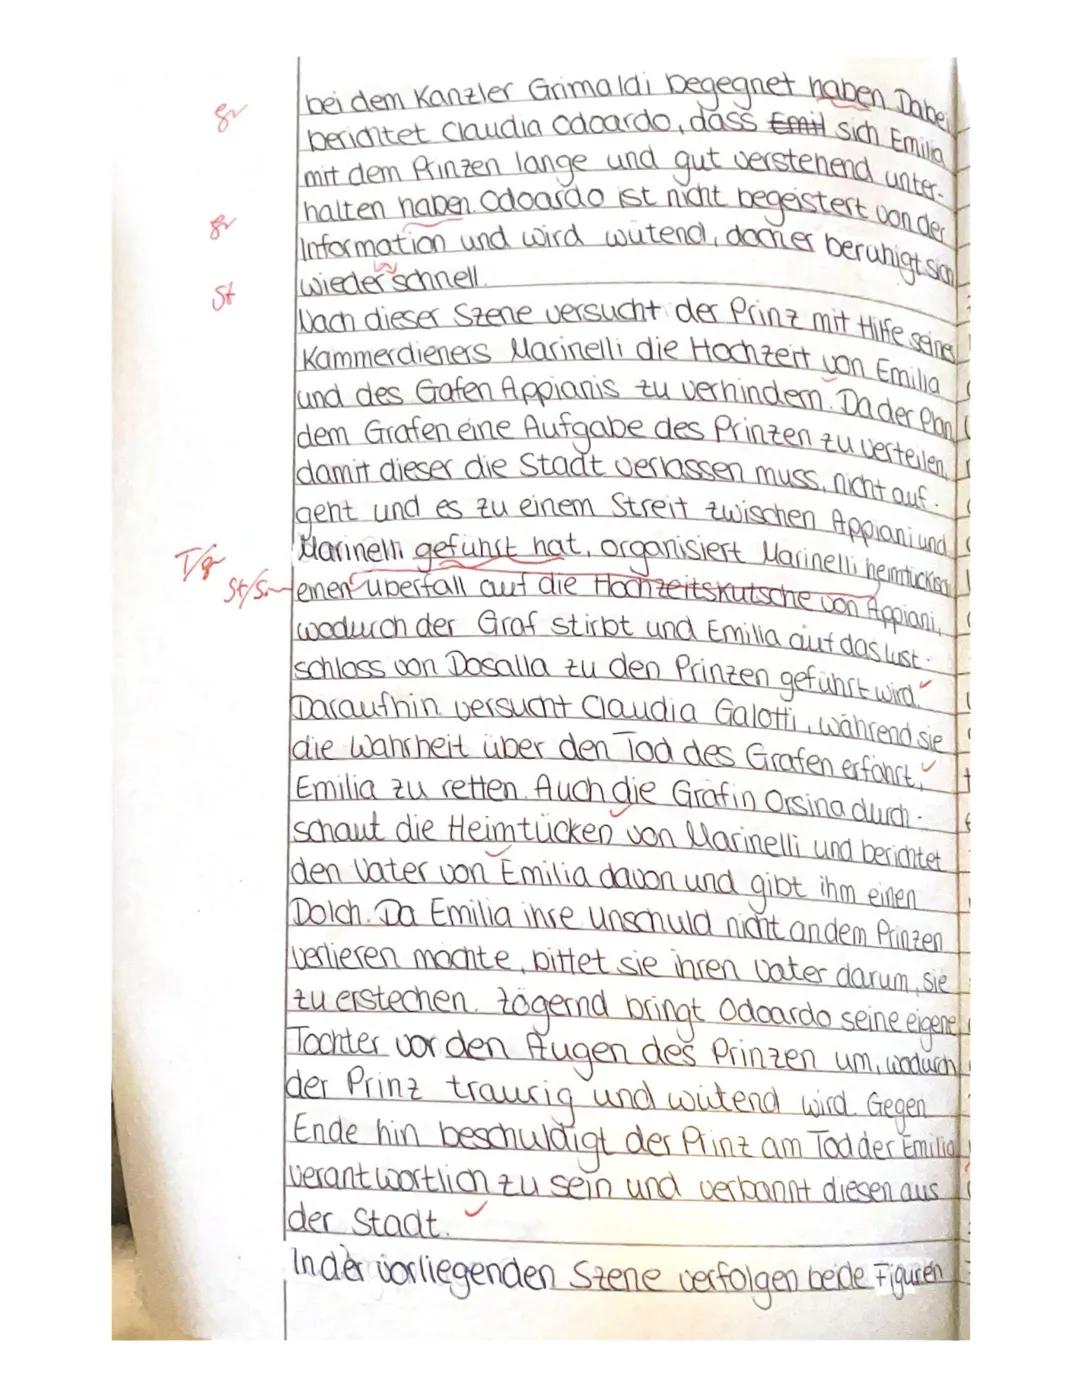 gr
bei dem Kanzler Grimaldi begegnet haben. Dabei
berichtet Claudia Odoardo, dass Emil sich Emilia
mit dem Prinzen lange und gut verstehend unter-
gr
halten haben. Odoardo ist nicht begeistert von der
Information und wird wütend, doch er beruhigt sich
St
wieder schnell.
Nach dieser Szene versucht der Prinz mit Hilfe seines
Kammerdieners Marinelli die Hochzeit von Emilia
und des Gafen Appianis zu verhindern. Da der Plan
dem Grafen eine Aufgabe des Prinzen zu verteilen,
damit dieser die Stadt verlassen muss, nicht auf-
geht und es zu einem Streit zwischen Appiani und
T/gr
Marinelli geführt hat, organisiert Marinelli heimtückisch
St/Sn
einen Überfall auf die Hochzeitskutsche von Appiani,
wodurch der Graf stirbt und Emilia auf das Lust-
schloss von Dosalla zu den Prinzen geführt wird.
Daraufhin versucht Claudia Galotti, während sie
die Wahrheit über den Tod des Grafen erfährt,
Emilia zu retten. Auch die Gräfin Orsina durch-
schaut die Heimtücken von Marinelli und berichtet
den Vater von Emilia davon und gibt ihm einen
Dolch. Da Emilia ihre Unschuld nicht an dem Prinzen
verlieren möchte, bittet sie ihren Vater darum, sie
zu erstechen. Zögernd bringt Odoardo seine eigene
Tochter vor den Augen des Prinzen um, wodurch
der Prinz traurig und wütend wird. Gegen
Ende hin beschuldigt der Prinz am Tod der Emilia
verantwortlich zu sein und verbannt diesen aus
der Stadt.
In der vorliegenden Szene verfolgen beide Figuren